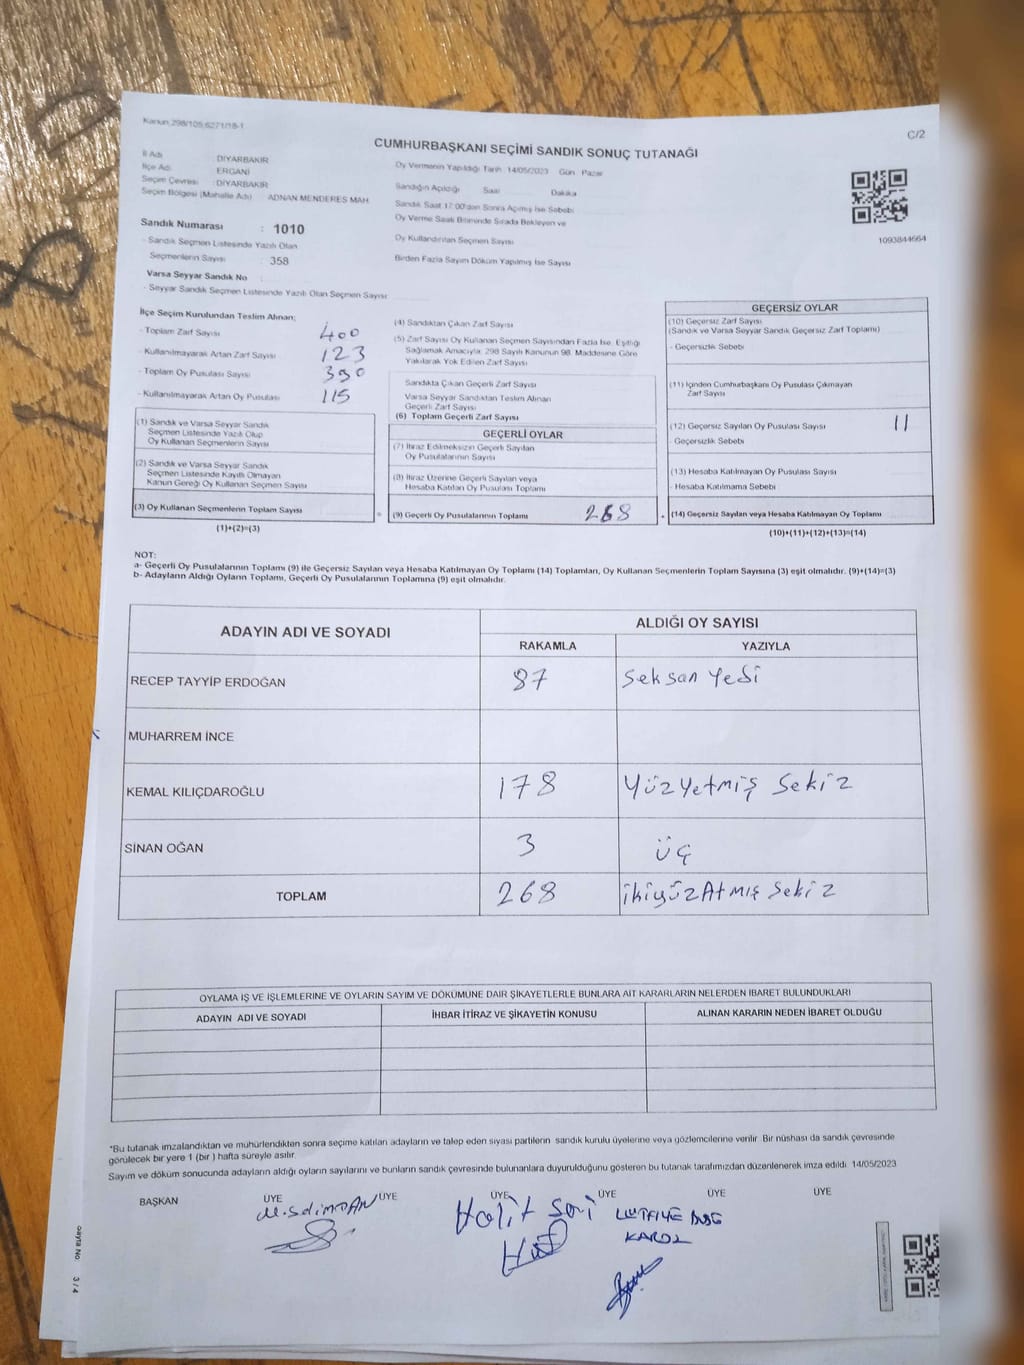 Kanun:298/105,6271/18-1
C/2
CUMHURBAŞKANI SEÇİMİ SANDIK SONUÇ TUTANAĞI
İl Adı DİYARBAKIR
İlçe Adı ERGANİ
Seçim Çevresi DİYARBAKIR
Seçim Bölgesi (Mahalle Adı) ADNAN MENDERES MAH
Sandık Numarası : 1010
- Sandık Seçmen Listesinde Yazılı Olan
Seçmenlerin Sayısı : 358
Varsa Seyyar Sandık No
- Seyyar Sandık Seçmen Listesinde Yazılı Olan Seçmen Sayısı
Oy Vermenin Yapıldığı Tarih 14/05/2023 Gün Pazar
Sandığın Açıldığı Saat Dakika
Sandık Saat 17:00'den Sonra Açılmış İse Sebebi
Oy Verme Saati Bitiminde Sırada Bekleyen ve
Oy Kullandırılan Seçmen Sayısı
Birden Fazla Sayım Döküm Yapılmış İse Sayısı
1093844664
İlçe Seçim Kurulundan Teslim Alınan;
- Toplam Zarf Sayısı 400
- Kullanılmayarak Artan Zarf Sayısı 123
- Toplam Oy Pusulası Sayısı 390
- Kullanılmayarak Artan Oy Pusulası 115
(1) Sandık ve Varsa Seyyar Sandık
Seçmen Listesinde Yazılı Olup
Oy Kullanan Seçmenlerin Sayısı
(2) Sandık ve Varsa Seyyar Sandık
Seçmen Listesinde Kayıtlı Olmayan
Kanun Gereği Oy Kullanan Seçmen Sayısı
(3) Oy Kullanan Seçmenlerin Toplam Sayısı
(1)+(2)=(3)
(4) Sandıktan Çıkan Zarf Sayısı
(5) Zarf Sayısı Oy Kullanan Seçmen Sayısından Fazla İse, Eşitliği
Sağlamak Amacıyla, 298 Sayılı Kanunun 98. Maddesine Göre
Yakılarak Yok Edilen Zarf Sayısı
Sandıkta Çıkan Geçerli Zarf Sayısı
Varsa Seyyar Sandıktan Teslim Alınan
Geçerli Zarf Sayısı
(6) Toplam Geçerli Zarf Sayısı
GEÇERLİ OYLAR
(7) İtiraz Edilmeksizin Geçerli Sayılan
Oy Pusulalarının Sayısı
(8) İtiraz Üzerine Geçerli Sayılan veya
Hesaba Katılan Oy Pusulası Toplamı
= (9) Geçerli Oy Pusulalarının Toplamı 268
GEÇERSİZ OYLAR
(10) Geçersiz Zarf Sayısı
(Sandık ve Varsa Seyyar Sandık Geçersiz Zarf Toplamı)
- Geçersizlik Sebebi
(11) İçinden Cumhurbaşkanı Oy Pusulası Çıkmayan
Zarf Sayısı
(12) Geçersiz Sayılan Oy Pusulası Sayısı 11
Geçersizlik Sebebi
(13) Hesaba Katılmayan Oy Pusulası Sayısı
- Hesaba Katılmama Sebebi
+ (14) Geçersiz Sayılan veya Hesaba Katılmayan Oy Toplamı
(10)+(11)+(12)+(13)=(14)
NOT:
a- Geçerli Oy Pusulalarının Toplamı (9) ile Geçersiz Sayılan veya Hesaba Katılmayan Oy Toplamı (14) Toplamları, Oy Kullanan Seçmenlerin Toplam Sayısına (3) eşit olmalıdır. (9)+(14)=(3)
b- Adayların Aldığı Oyların Toplamı, Geçerli Oy Pusulalarının Toplamına (9) eşit olmalıdır.
ADAYIN ADI VE SOYADI ALDIĞI OY SAYISI
RAKAMLA YAZIYLA
RECEP TAYYİP ERDOĞAN 87 Seksan Yedi
MUHARREM İNCE
KEMAL KILIÇDAROĞLU 178 Yüz Yetmiş Sekiz
SİNAN OĞAN 3 üç
TOPLAM 268 ikiyüz Atmış Sekiz
OYLAMA İŞ VE İŞLEMLERİNE VE OYLARIN SAYIM VE DÖKÜMÜNE DAİR ŞİKAYETLERLE BUNLARA AİT KARARLARIN NELERDEN İBARET BULUNDUKLARI
ADAYIN ADI VE SOYADI İHBAR İTİRAZ VE ŞİKAYETİN KONUSU ALINAN KARARIN NEDEN İBARET OLDUĞU
*Bu tutanak imzalandıktan ve mühürlendikten sonra seçime katılan adayların ve talep eden siyasi partilerin sandık kurulu üyelerine veya gözlemcilerine verilir. Bir nüshası da sandık çevresinde
görülecek bir yere 1 (bir) hafta süreyle asılır.
Sayım ve döküm sonucunda adayların aldığı oyların sayılarını ve bunların sandık çevresinde bulunanlara duyurulduğunu gösteren bu tutanak tarafımızdan düzenlenerek imza edildi. 14/05/2023
BAŞKAN ÜYE ÜYE ÜYE ÜYE ÜYE ÜYE
Halit
LÜTFİYE
Sayfa No 3 / 4